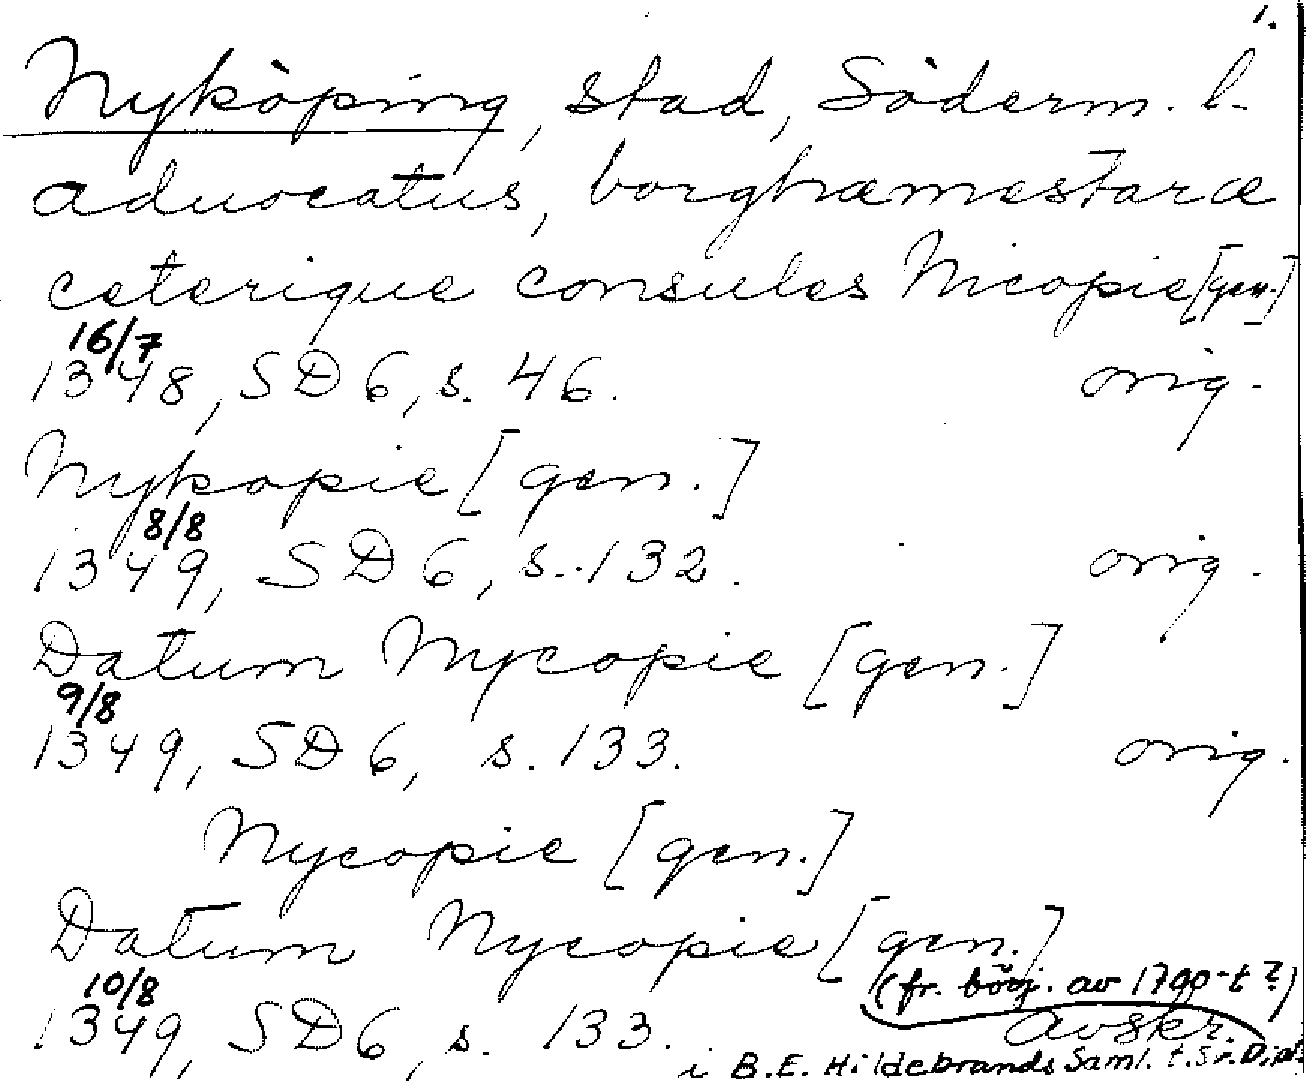 1.
Nyköping, stad, Söderm. l.
advocatus, borghamestaræ
ceterique consules Nicopie [gen.]
16/7
1348, SD 6, s. 46. orig.
Nykopie [gen.]
8/8
1349, SD 6, s. 132. orig.
Datum Nycopie [gen.]
9/8
1349, SD 6, s. 133. orig.
Nycopie [gen.]
Datum Nycopie [gen.]
(fr. börj. av 1790-t?)
10/8
1349, SD 6, s. 133. avskr.
i B.E. Hildebrands Saml. t. Sv. Dipl.